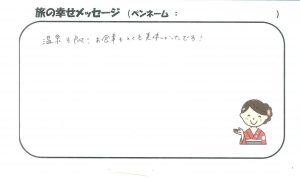 旅の幸せメッセージ (ペンネーム： )
温泉も良く、お食事もとても美味しかったです！